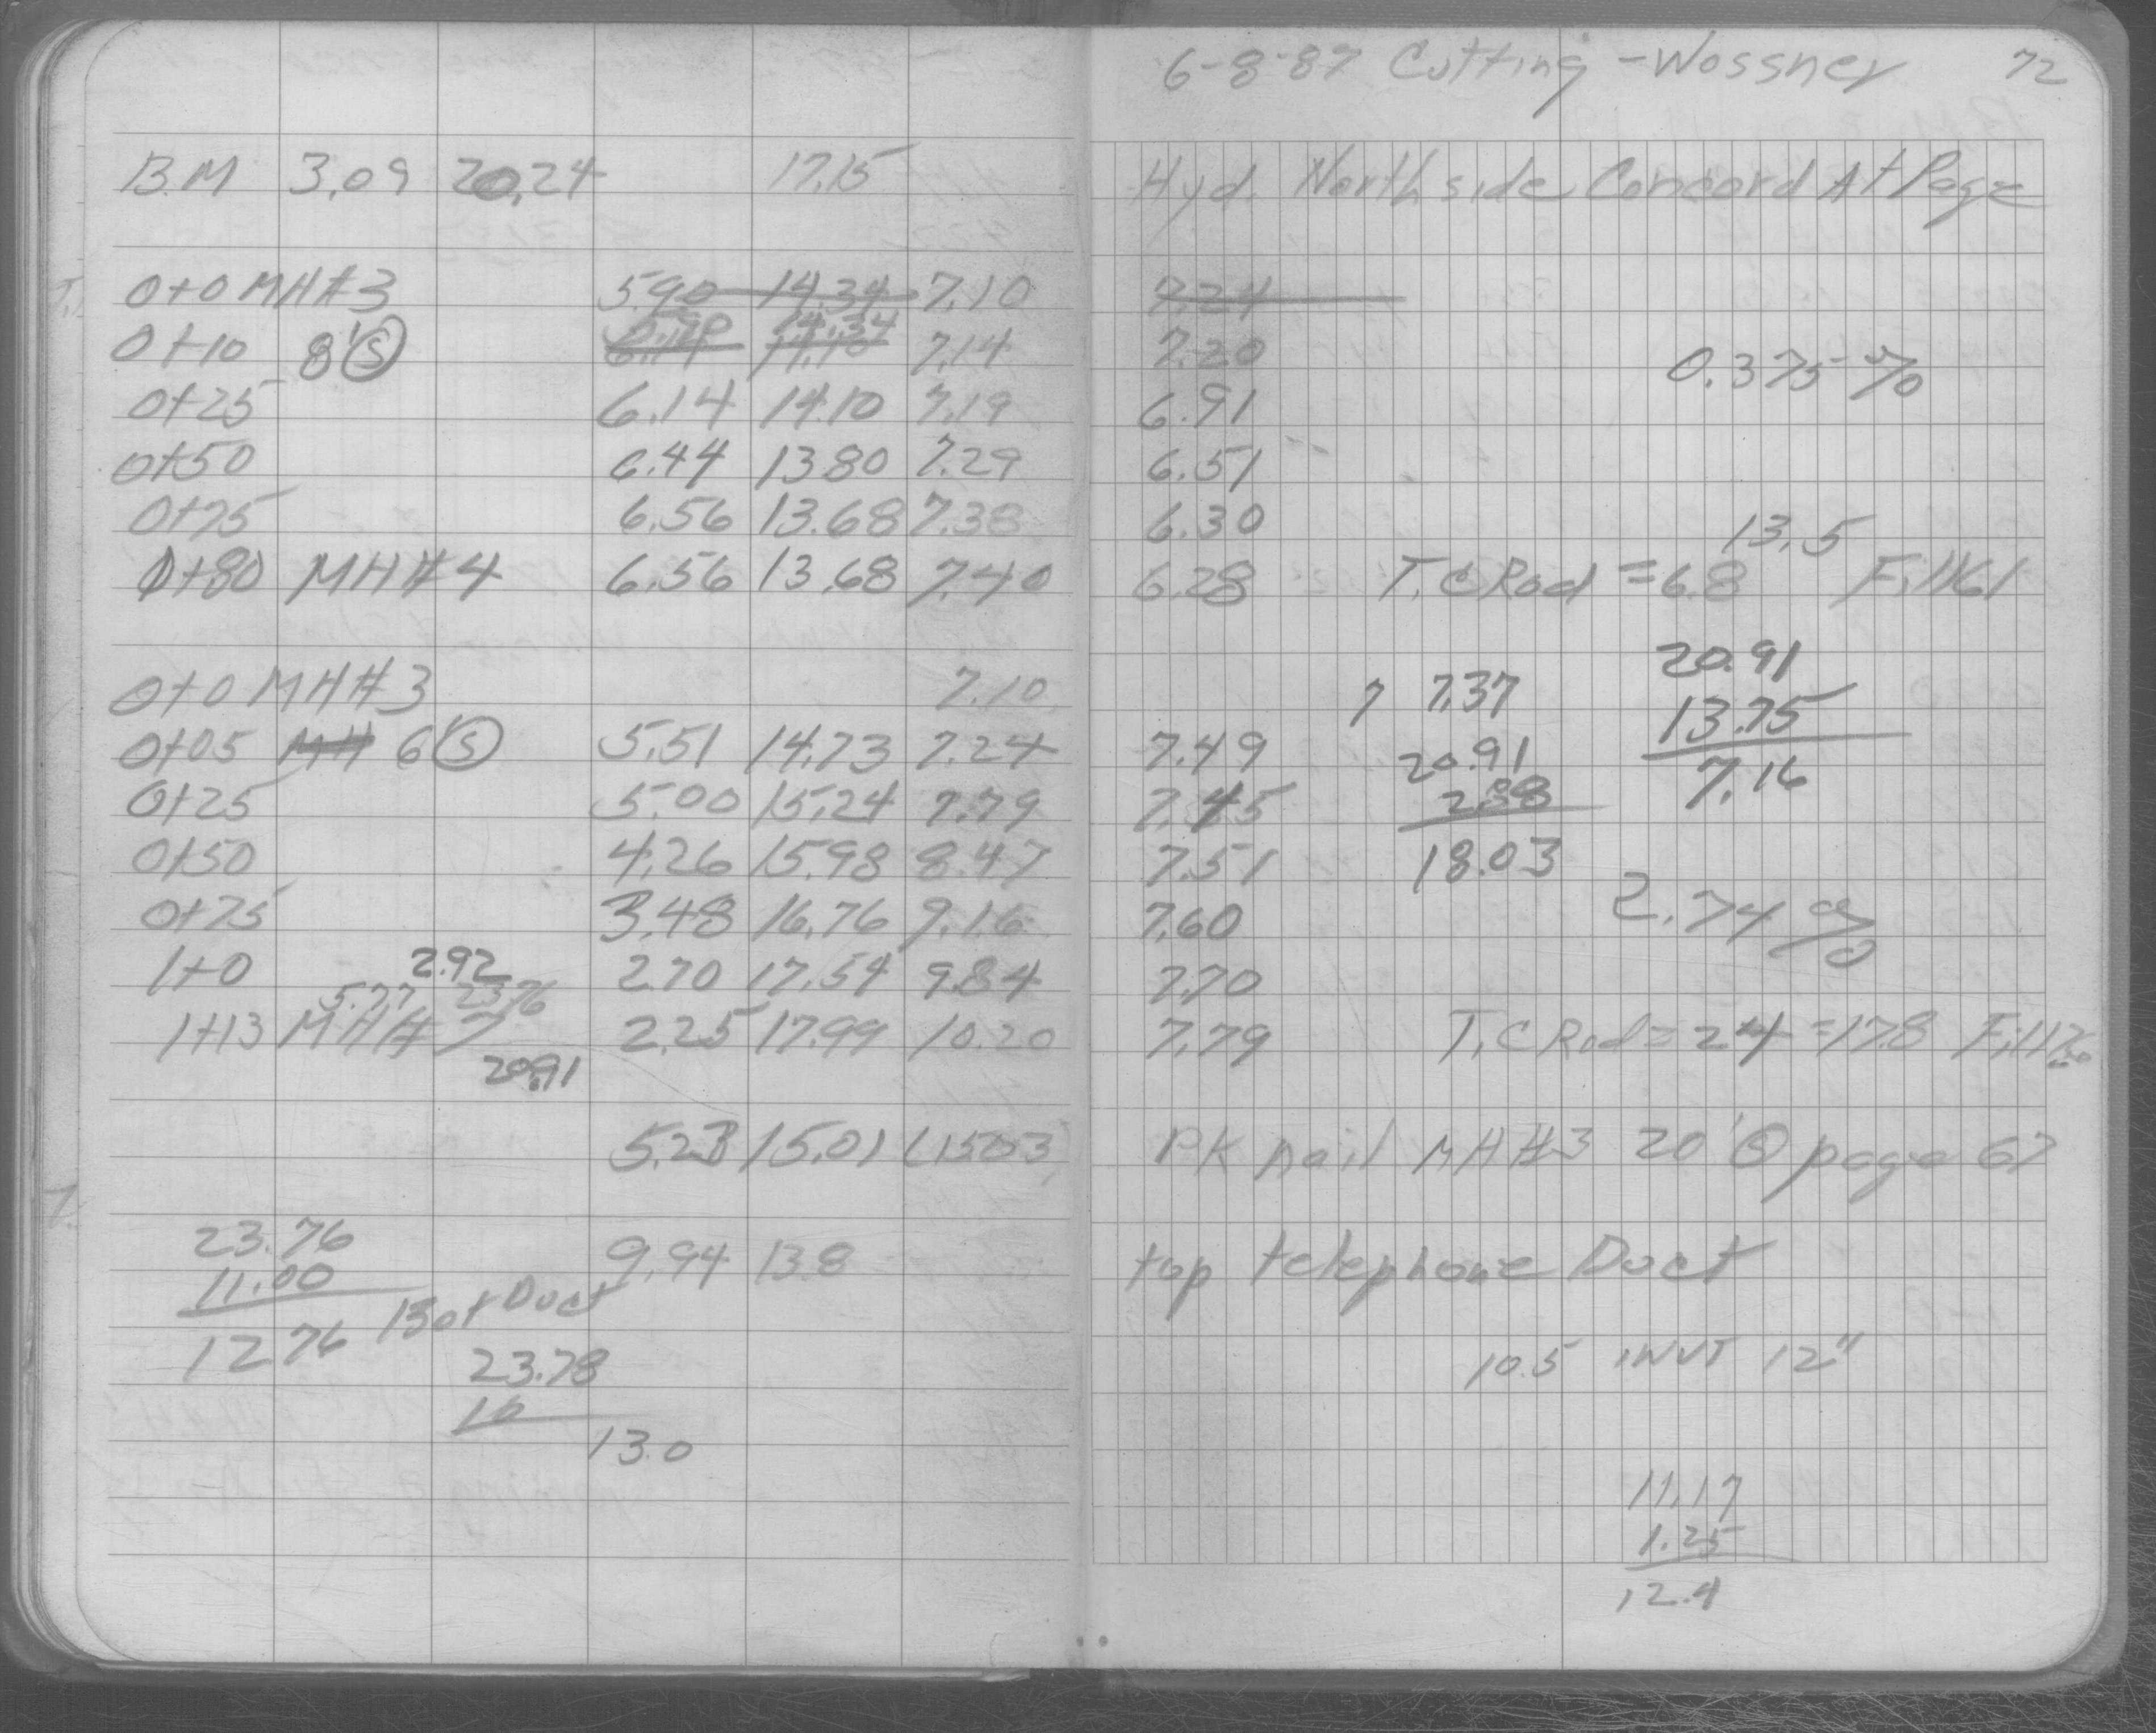 6-8-87 Cutting - Wossner 72
B.M 3.09 20.24 17.15 Hyd. North side Concord At Page
0+0 MH#3 5.90 14.34 7.10 7.24
0+10 8' Ⓢ 5.90 14.34 7.14 7.20 0.375%
0+25 6.14 14.10 7.19 6.91
0+50 6.44 13.80 7.29 6.51
0+75 6.56 13.68 7.38 6.30
13.5
0+80 MH#4 6.56 13.68 7.40 6.28 T.C Rod = 6.8 Fill 161
20.91
0+0 MH#3 7.10 7 7.37 13.75
0+05 MH 6' Ⓢ 5.51 14.73 7.24 7.49 20.91 7.16
0+25 5.00 15.24 7.79 7.45 2.88
0+50 4.26 15.98 8.47 7.51 18.03
0+75 3.48 16.76 9.16 7.60 2.74%
1+0 2.92 2.70 17.54 9.84 7.70
5.77 23.76
1+13 MH# 7 2.25 17.99 10.20 7.79 T.C Rod = 24 = 17.8 Fill
20.91
5.23 15.01 (15.03) PK nail MH#3 20' Ⓢ page 67
23.76 9.94 13.8 top telephone Duct
11.00
12.76 Bot Duct
23.78 10.5 INVT 12"
10
13.0
11.17
1.25
12.4